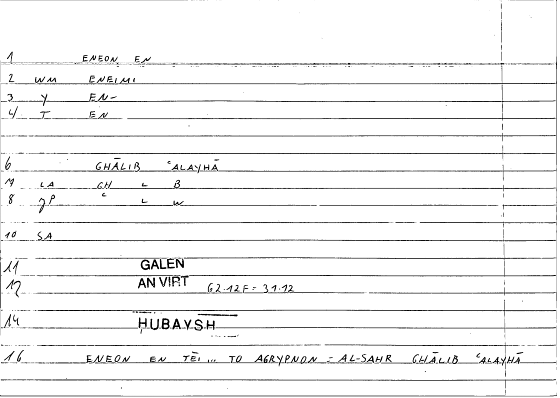 1 ENEON, EN
2 WM ENEIMI
3 Y EN-
4 T EN
6 GHĀLIB ʿALAYHĀ
7 LA GH L B
8 JP ʿ L W
10 SA
11 GALEN
12 AN VIRT 62.12F = 31.12
14 ḤUBAYSH
16 ENEON EN TĒI... TO AGRYPNON = AL-SAHR GHĀLIB ʿALAYHĀ